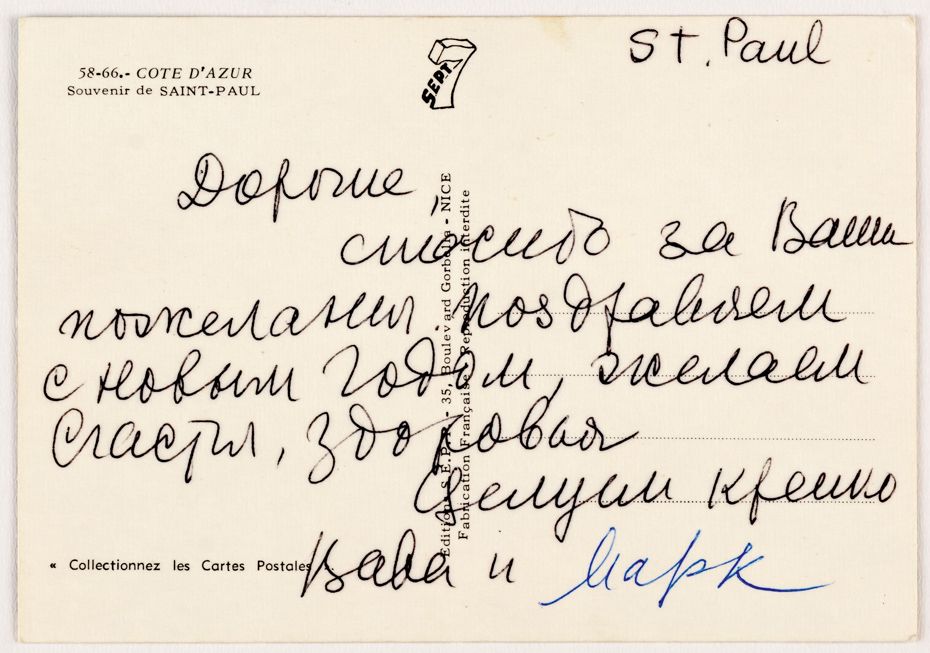 58-66.- COTE D'AZUR
Souvenir de SAINT-PAUL
SEPT 7
St. Paul
Дорогие,
спасибо за Ваши
пожелания. Поздравляем
с новым годом, желаем
счастья, здоровья
Целуем крепко
Вава и Марк
Editions S.E.P.T. - 35, Boulevard Gorbella - NICE
Fabrication Française Reproduction interdite
« Collectionnez les Cartes Postales »